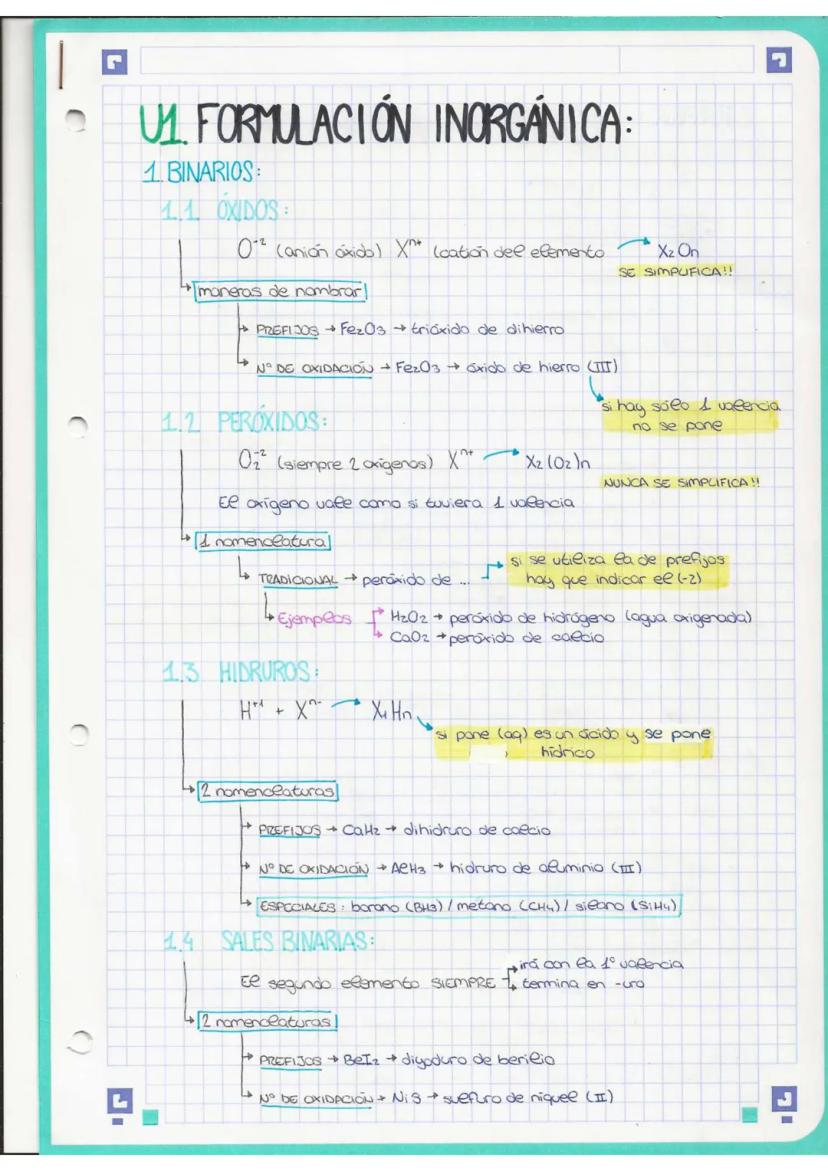 U1. FORMULACIÓN INORGÁNICA:
1. BINARIOS:
1.1 ÓXIDOS:
O⁻² (anión óxido) Xⁿ⁺ (catión del elemento → X₂On
SE SIMPLIFICA!!
maneras de nombrar
PREFIJOS → Fe₂O₃ → trióxido de dihierro
Nº DE OXIDACIÓN → Fe₂O₃ → óxido de hierro (III)
si hay sólo 1 valencia
no se pone
1.2 PERÓXIDOS:
O₂⁻² (siempre 2 oxígenos) Xⁿ⁺ → X₂(O₂)n
NUNCA SE SIMPLIFICA!!
El oxígeno vale como si tuviera 1 valencia
1 nomenclatura
TRADICIONAL → peróxido de ... → si se utiliza la de prefijos
hay que indicar el (-2)
Ejemplos → H₂O₂ → peróxido de hidrógeno (agua oxigenada)
→ CaO₂ → peróxido de calcio
1.3 HIDRUROS:
H⁺¹ + Xⁿ⁻ → X₁Hn
si pone (aq) es un ácido y se pone
hídrico
2 nomenclaturas
PREFIJOS → CaH₂ → dihidruro de calcio
Nº DE OXIDACIÓN → AlH₃ → hidruro de aluminio (III)
ESPECIALES: borano (BH₃) / metano (CH₄) / silano (SiH₄)
1.4 SALES BINARIAS:
El segundo elemento SIEMPRE → irá con la 1º valencia
→ termina en -uro
2 nomenclaturas
PREFIJOS → BeI₂ → diyoduro de berilio
Nº DE OXIDACIÓN → NiS → sulfuro de níquel (II)